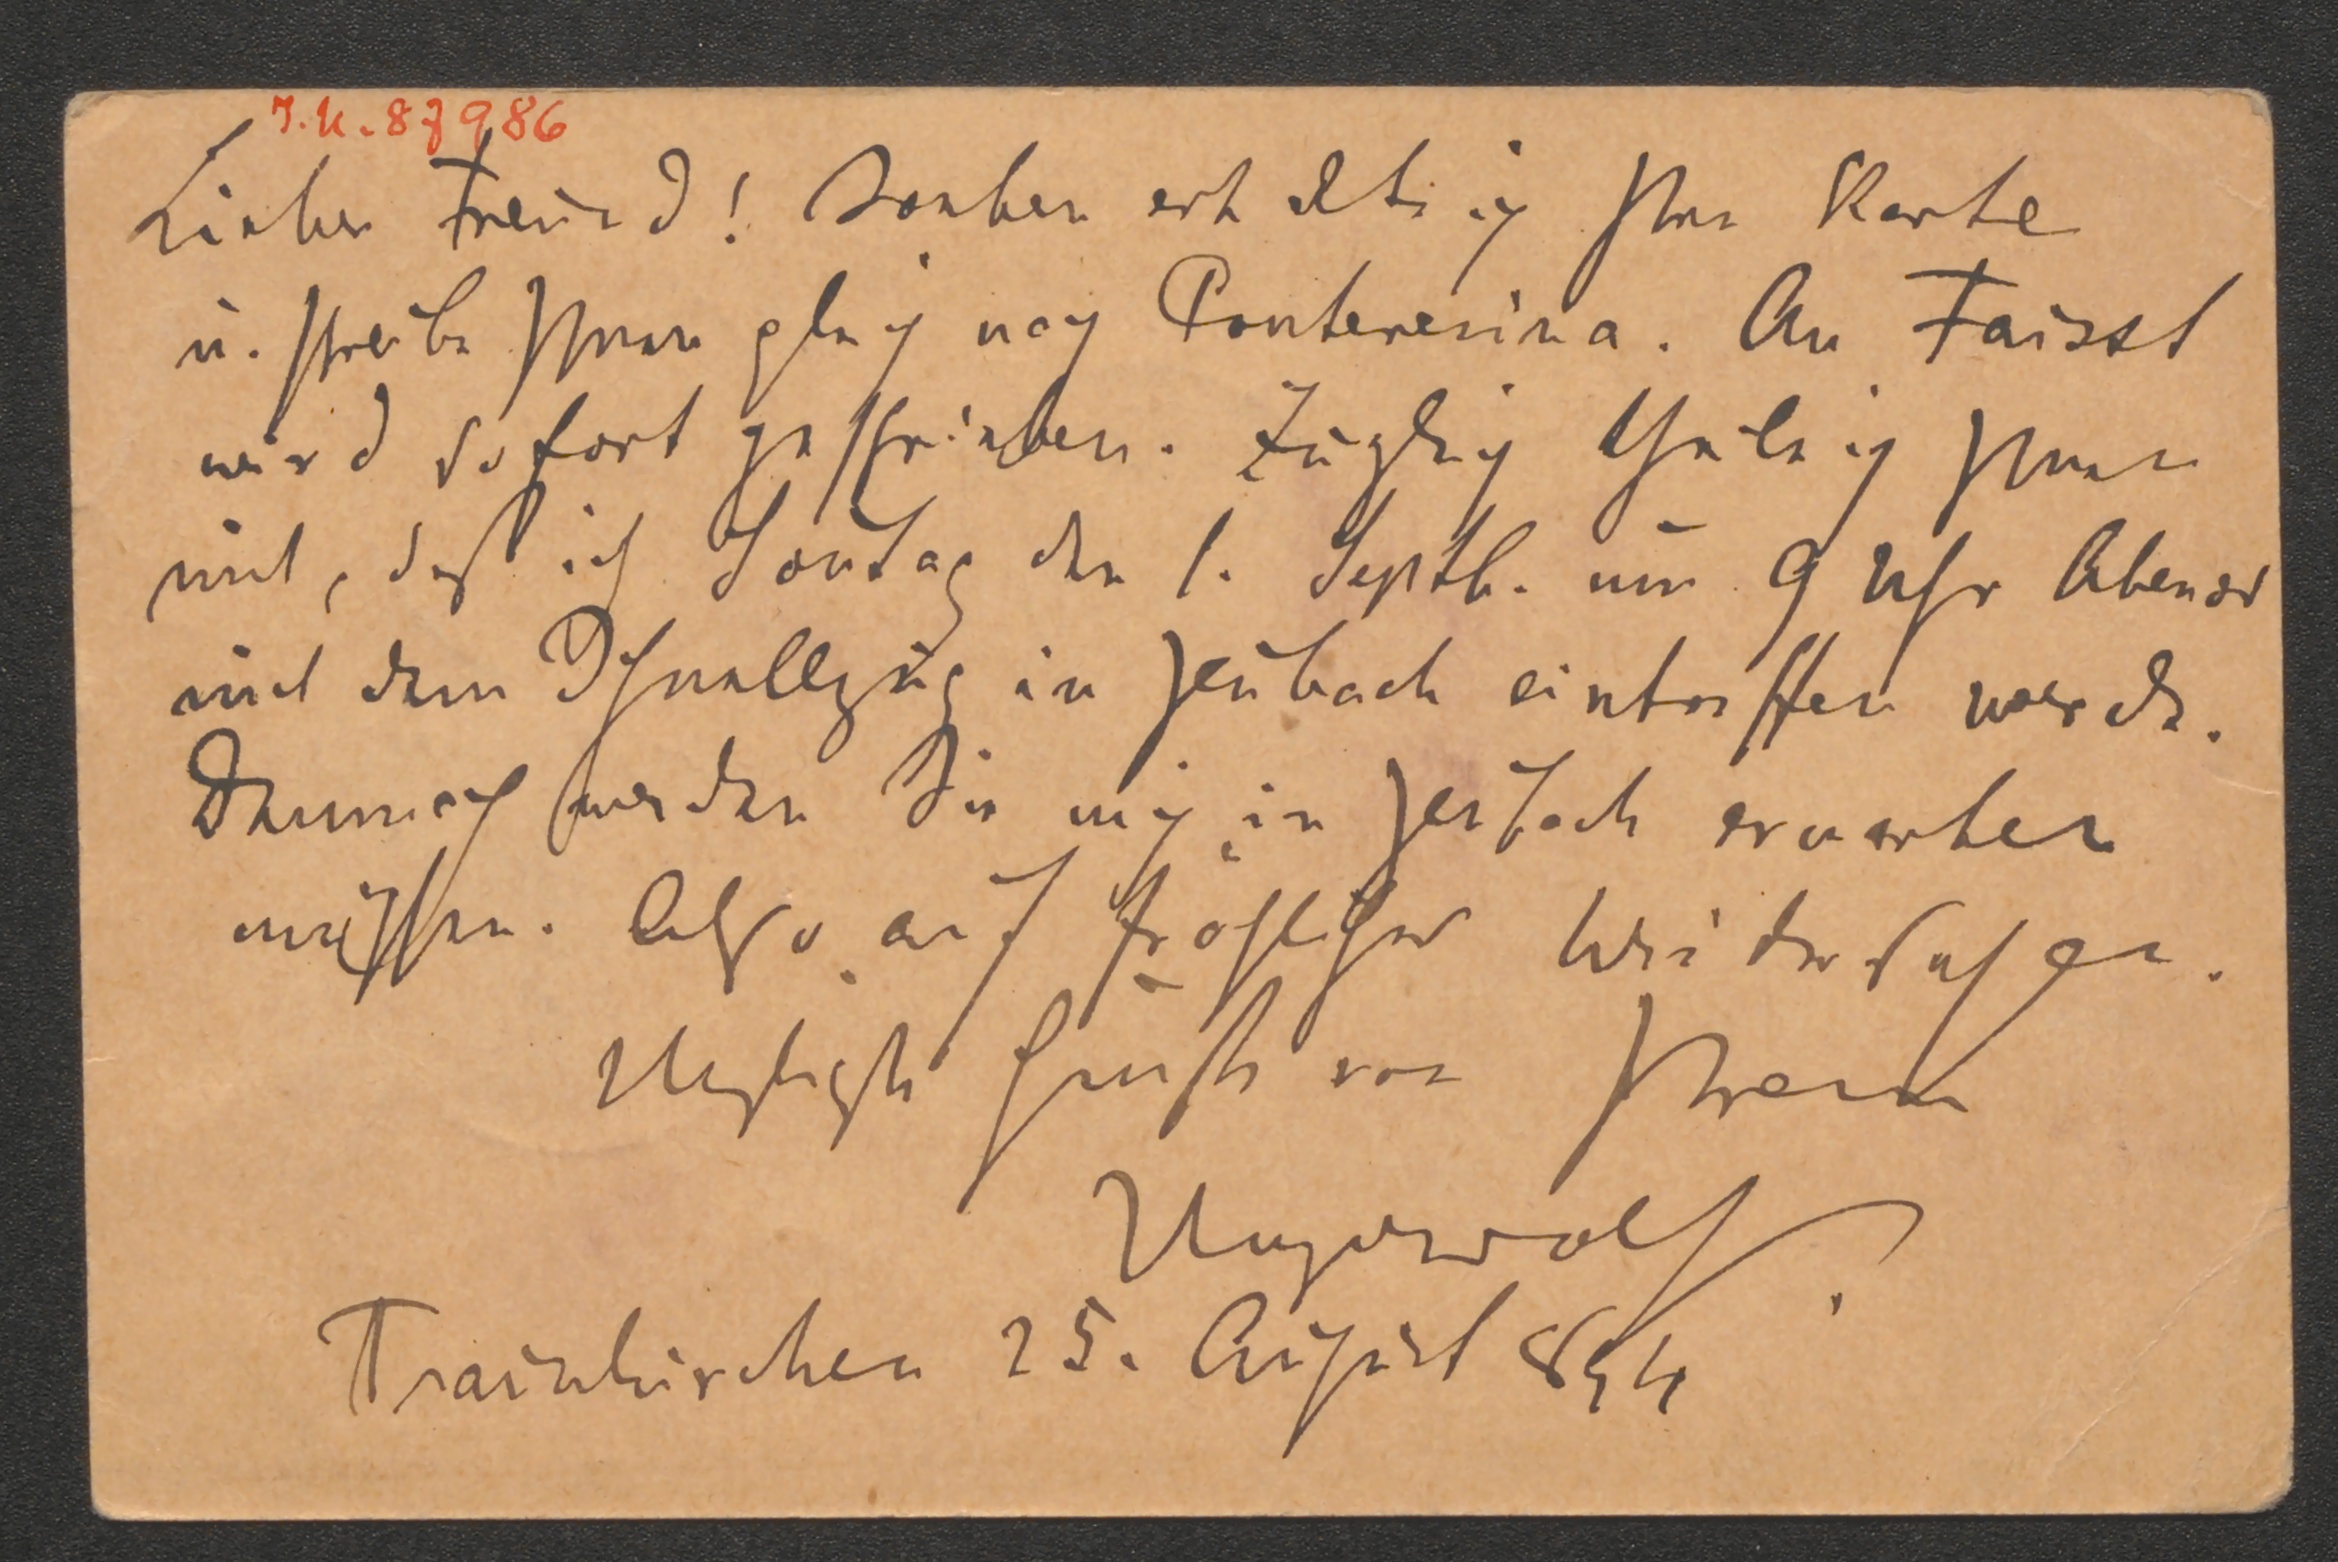 I.N. 87986
Lieber Freund! Soeben erhalte ich Ihre Karte
u. schreibe Ihnen gleich nach Ponteresina. An Faisst
wird sofort geschrieben. Zugleich theile ich Ihnen
mit, daß ich Sontag den 1. Septb. um 9 Uhr Abends
mit dem Schnellzug in Jenbach eintreffen werde.
Demnach werden Sie mich in Jenbach erwarten
müssen. Also auf fröhliches Wiedersehen.
Herzlichste Grüße von Ihrem
Hugo Wolf
Traunkirchen 25. August 894